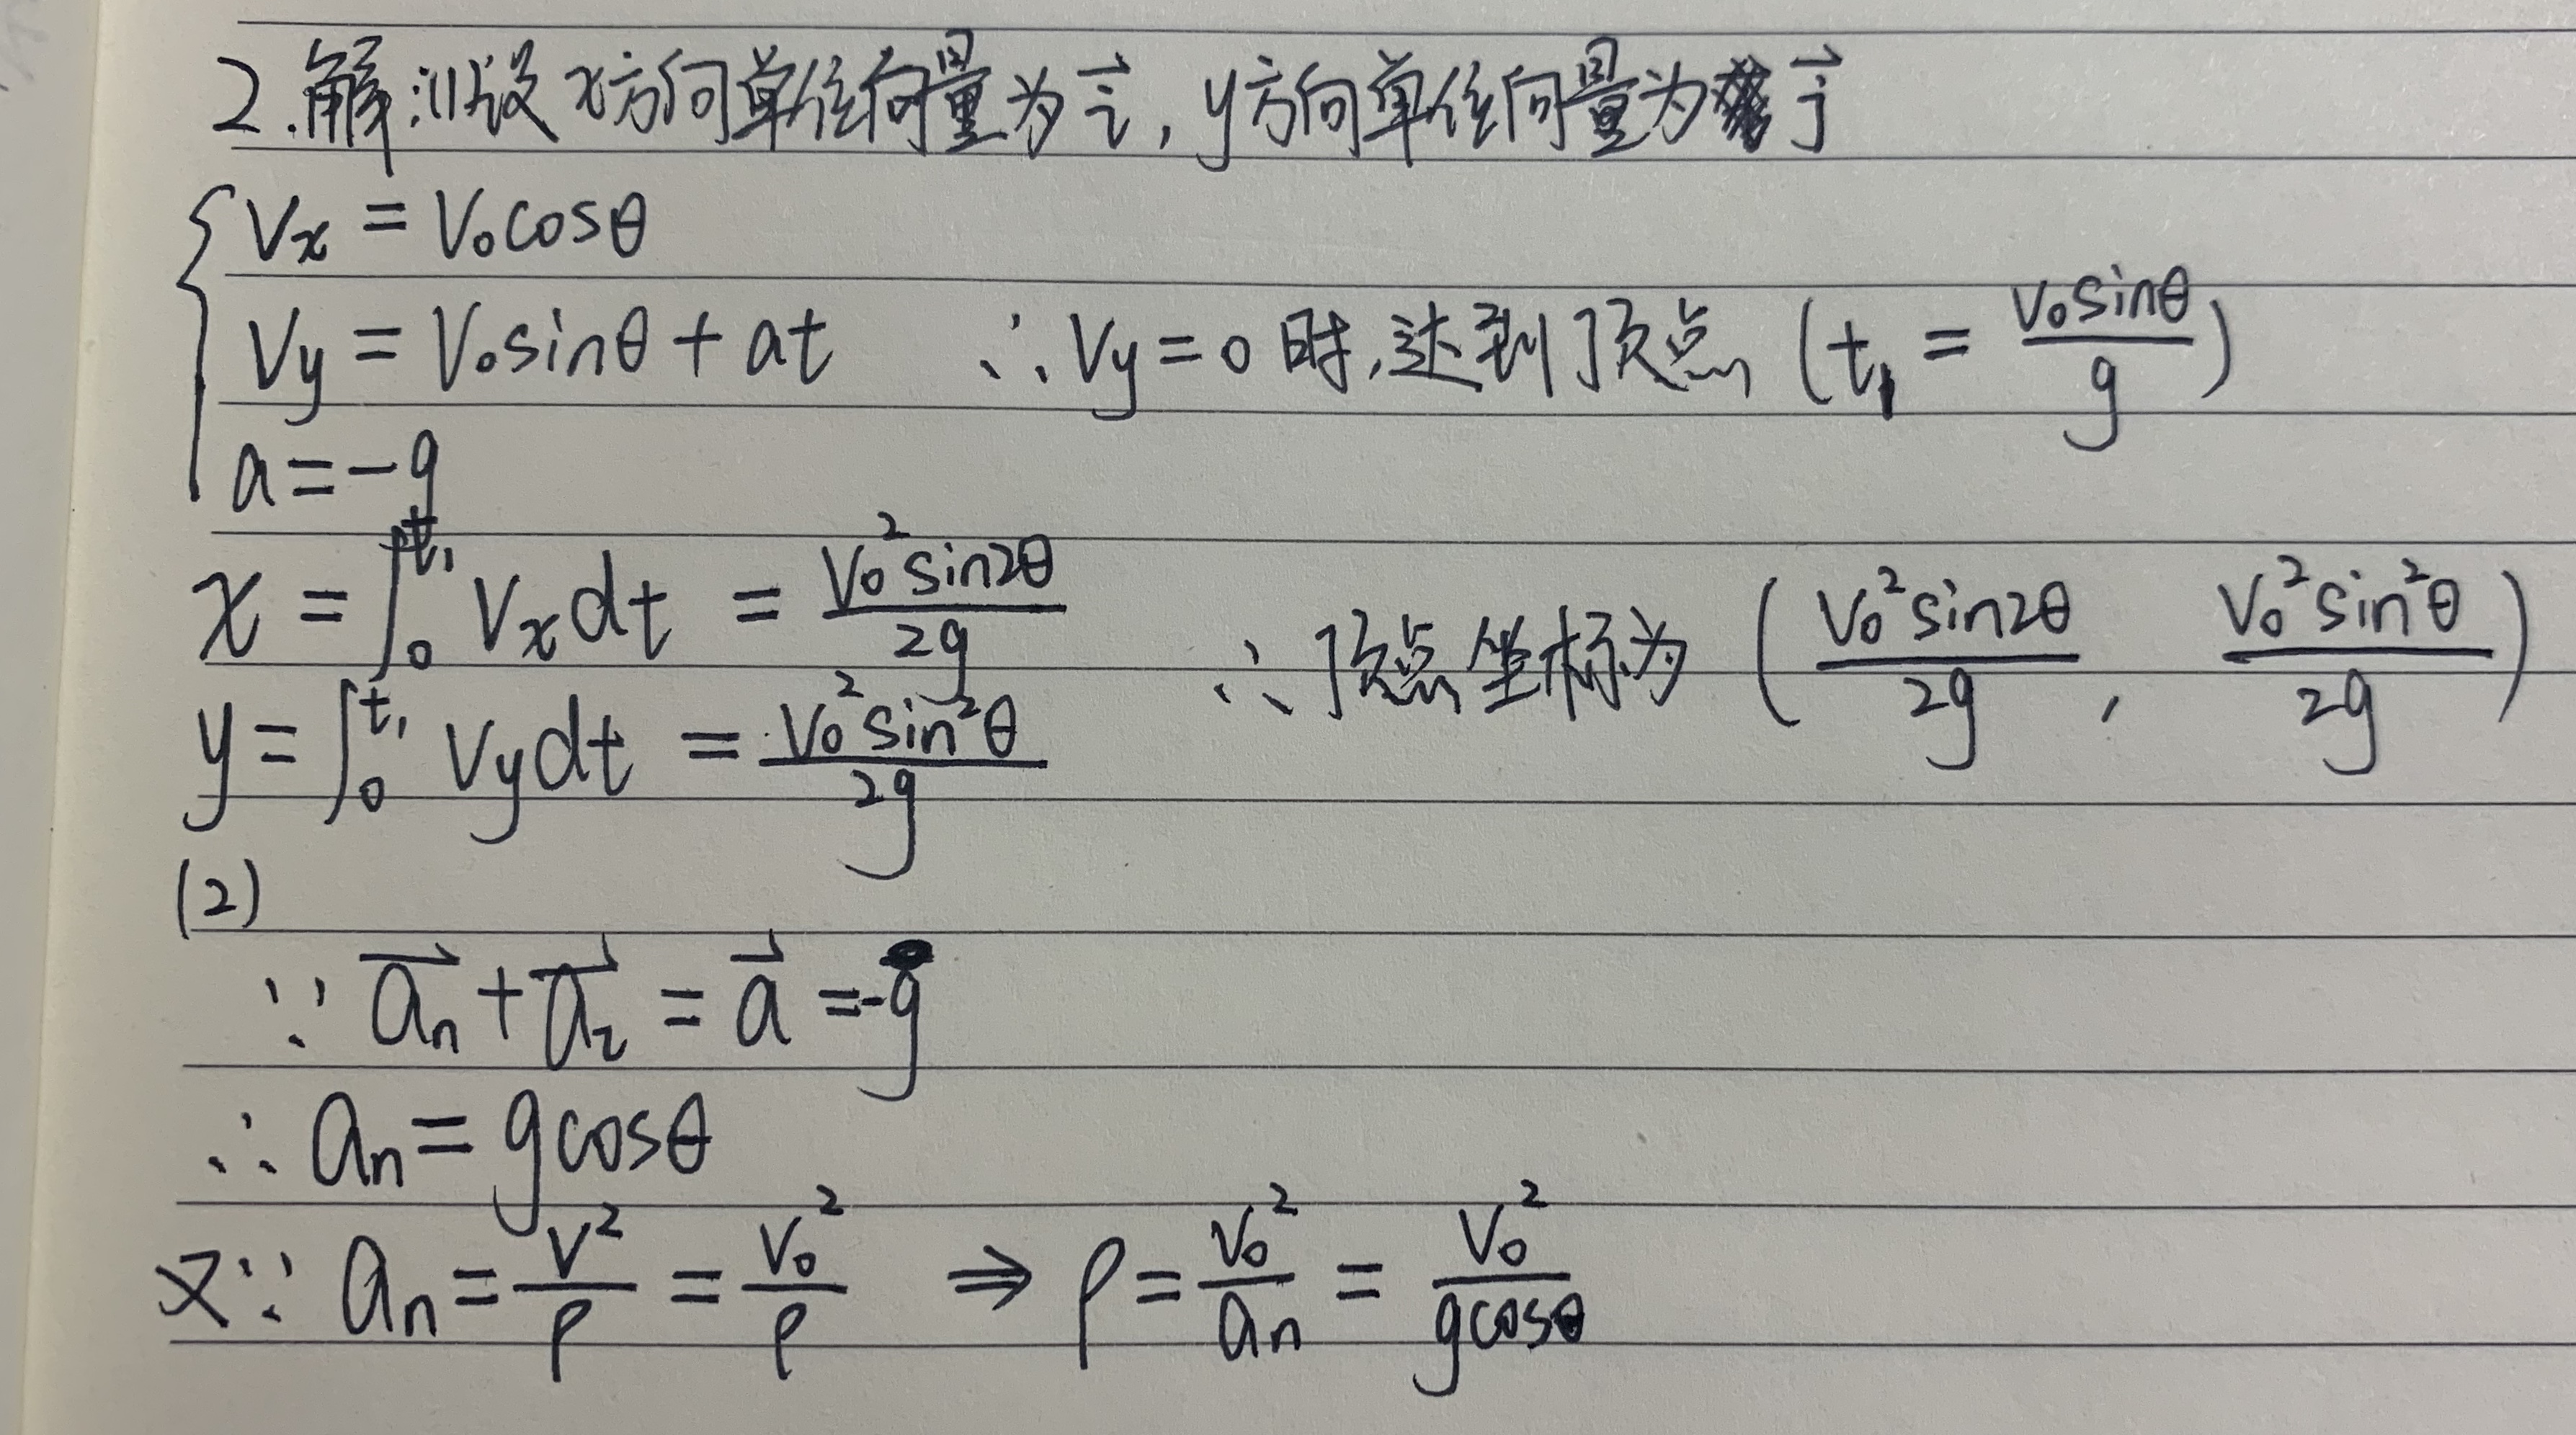 2.解:(1)设x方向单位向量为i⃗, y方向单位向量为j⃗
{Vx = V₀cosθ
Vy = V₀sinθ + at ∴Vy = 0 时,达到顶点 (t₁ = V₀sinθ/g)
a = -g
x = ∫₀^t₁ Vx dt = V₀²sin2θ/2g ∴顶点坐标为 (V₀²sin2θ/2g , V₀²sin²θ/2g)
y = ∫₀^t₁ Vy dt = V₀²sin²θ/2g
(2)
∵ a⃗n + a⃗τ = a⃗ = -g
∴ an = gcosθ
又∵ an = V²/ρ = V₀²/ρ ⇒ ρ = V₀²/an = V₀²/gcosθ